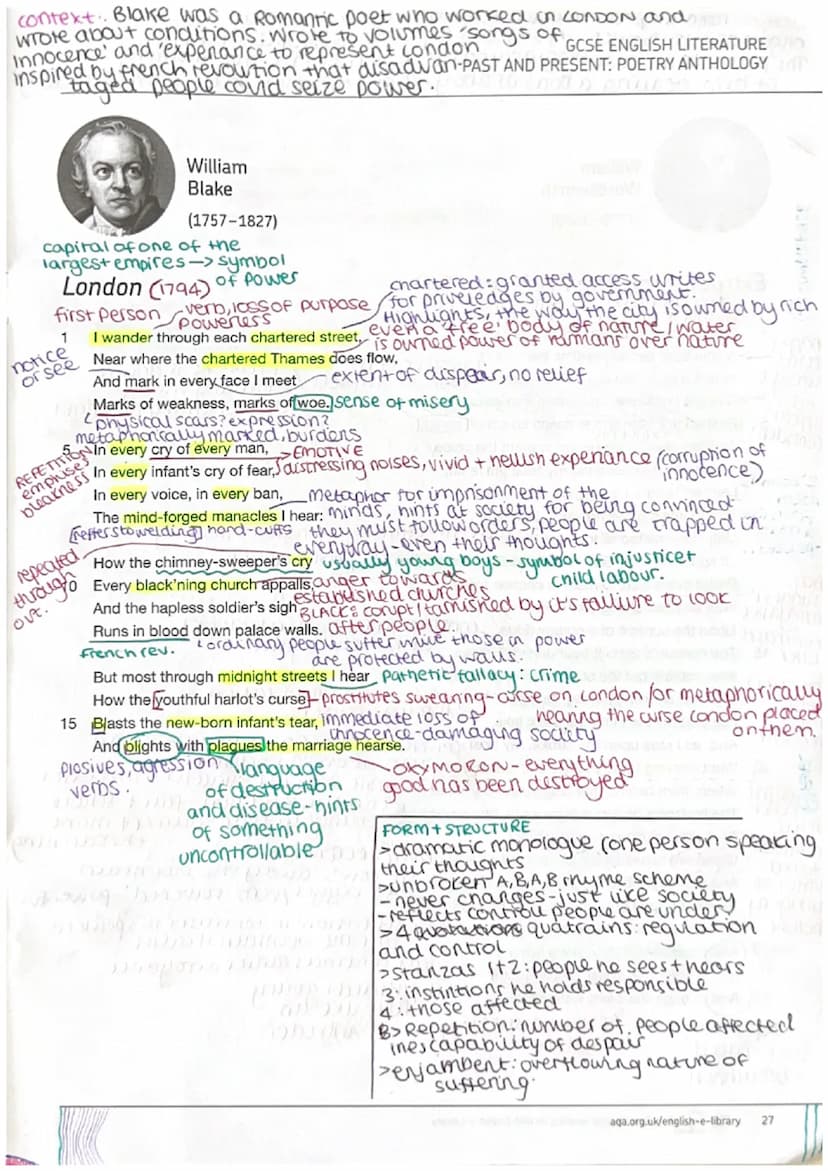 context: Blake was a Romantic poet who worked in London and
wrote about conditions. Wrote to volumes 'songs of
innocence' and 'experiance to represent london
inspired by french revoution that disadvan-
taged people could seize power.
GCSE ENGLISH LITERATURE
PAST AND PRESENT: POETRY ANTHOLOGY
William
Blake
(1757–1827)
capital of one of the
largest empires -> symbol
of power
London (1794)
first person
verb, loss of purpose
powerless
chartered: granted access writes
for priveledges by government.
Highlights, the way the city is owned by rich
even a 'free' body of nature/water
is owned power of humans over nature
1 I wander through each chartered street,
notice
or see
Near where the chartered Thames does flow,
And mark in every face I meet
extent of dispear, no relief
Marks of weakness, marks of woe. sense of misery
physical scars? expression?
metaphorically marked, burdens
5 In every cry of every man,
REPETITION
emphases
bleakness
> EMOTIVE
In every infant's cry of fear, distressing noises, vivid + hellish experience (corruption of
innocence)
In every voice, in every ban,
metaphor for imprisonment of the
minds, hints at society for being convinced
The mind-forged manacles I hear:
(reffers to welding) hand-cuffs
they must follow orders, people are trapped in
everyday - even their thoughts.
repeated
through
out.
How the chimney-sweeper's cry usually young boys - symbol of injustice +
child labour.
10 Every black'ning church appalls, anger towards
established churches
And the hapless soldier's sigh BLACK = corupt / tarnished by it's failure to look
after people
Runs in blood down palace walls.
French rev.
(ordinary people suffer while those in power
are protected by walls.
But most through midnight streets I hear pathetic fallacy: crime
How the youthful harlot's curse - prostitutes swearing - curse on london / or metaphorically
hearing the curse London placed
on them
15 Blasts the new-born infant's tear, immediate loss of
innocence - damaging society
And blights with plagues the marriage hearse.
plosives, agression
verbs.
language
of destruction
and disease - hints
of something
uncontrollable
- OXYMORON - everything
good has been distroyed
FORM + STRUCTURE
> dramatic monologue (one person speaking
their thoughts
> unbroken A,B,A,B rhyme scheme
- never changes - just like society
- reflects controll people are under
> 4 quatrains: regulation
and control
> stanzas 1+2: people he sees + hears
3: instintions he holds responsible
4: those affected
> Repetition: number of people affected
inescapability of despair
> enjambent: overflowing nature of
suffering.
aqa.org.uk/english-e-library 27